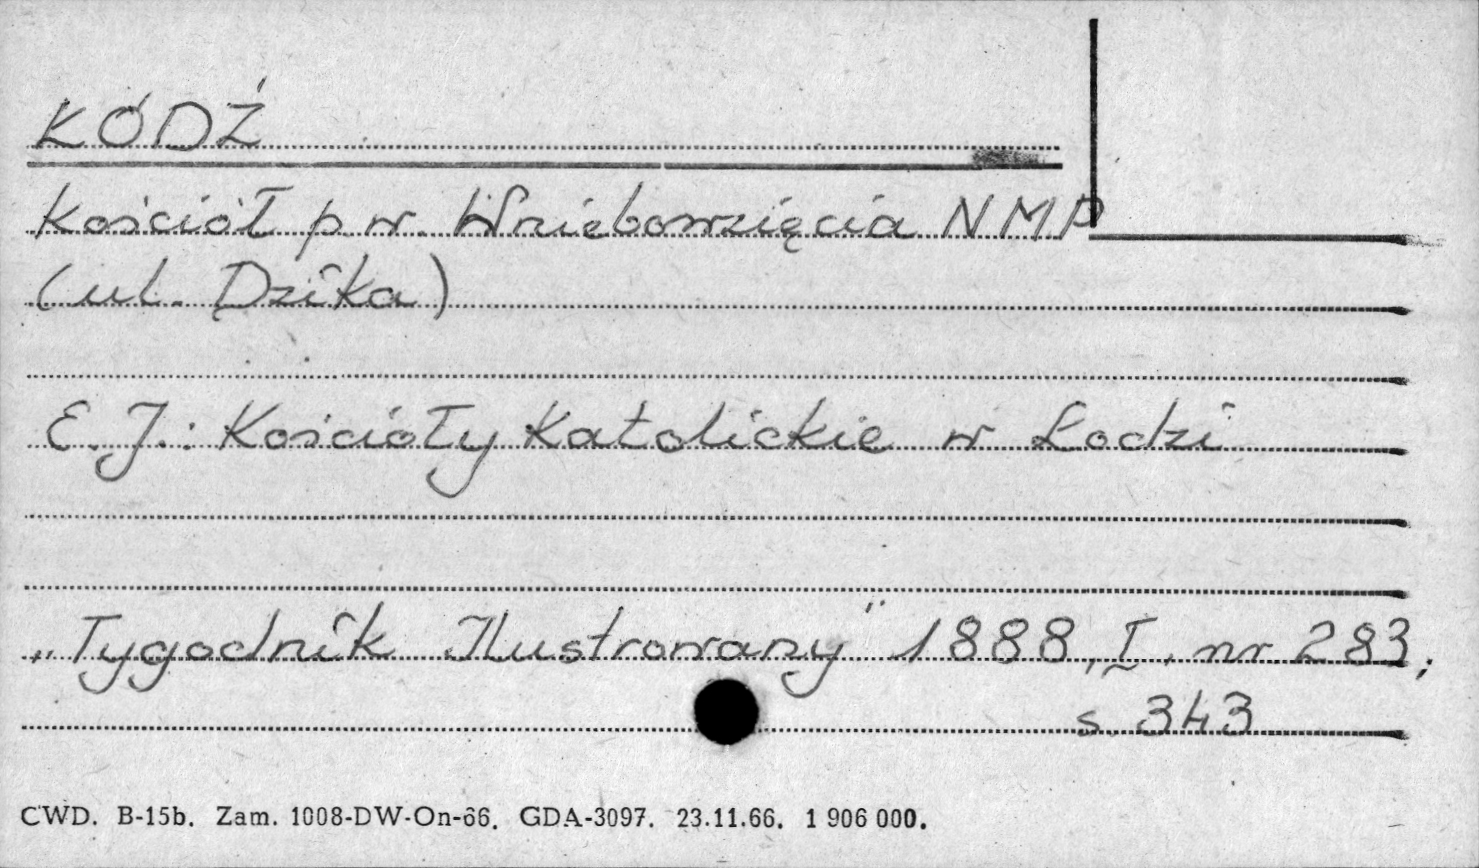 ŁÓDŹ
Kościół p.w. Wniebowzięcia NMP
(ul. Dzika)
E.J.: Kościoły Katolickie w Łodzi
„Tygodnik Ilustrowany" 1888, I, nr 283,
s. 343
CWD. B-15b. Zam. 1008-DW-On-66. GDA-3097. 23.11.66. 1 906 000.